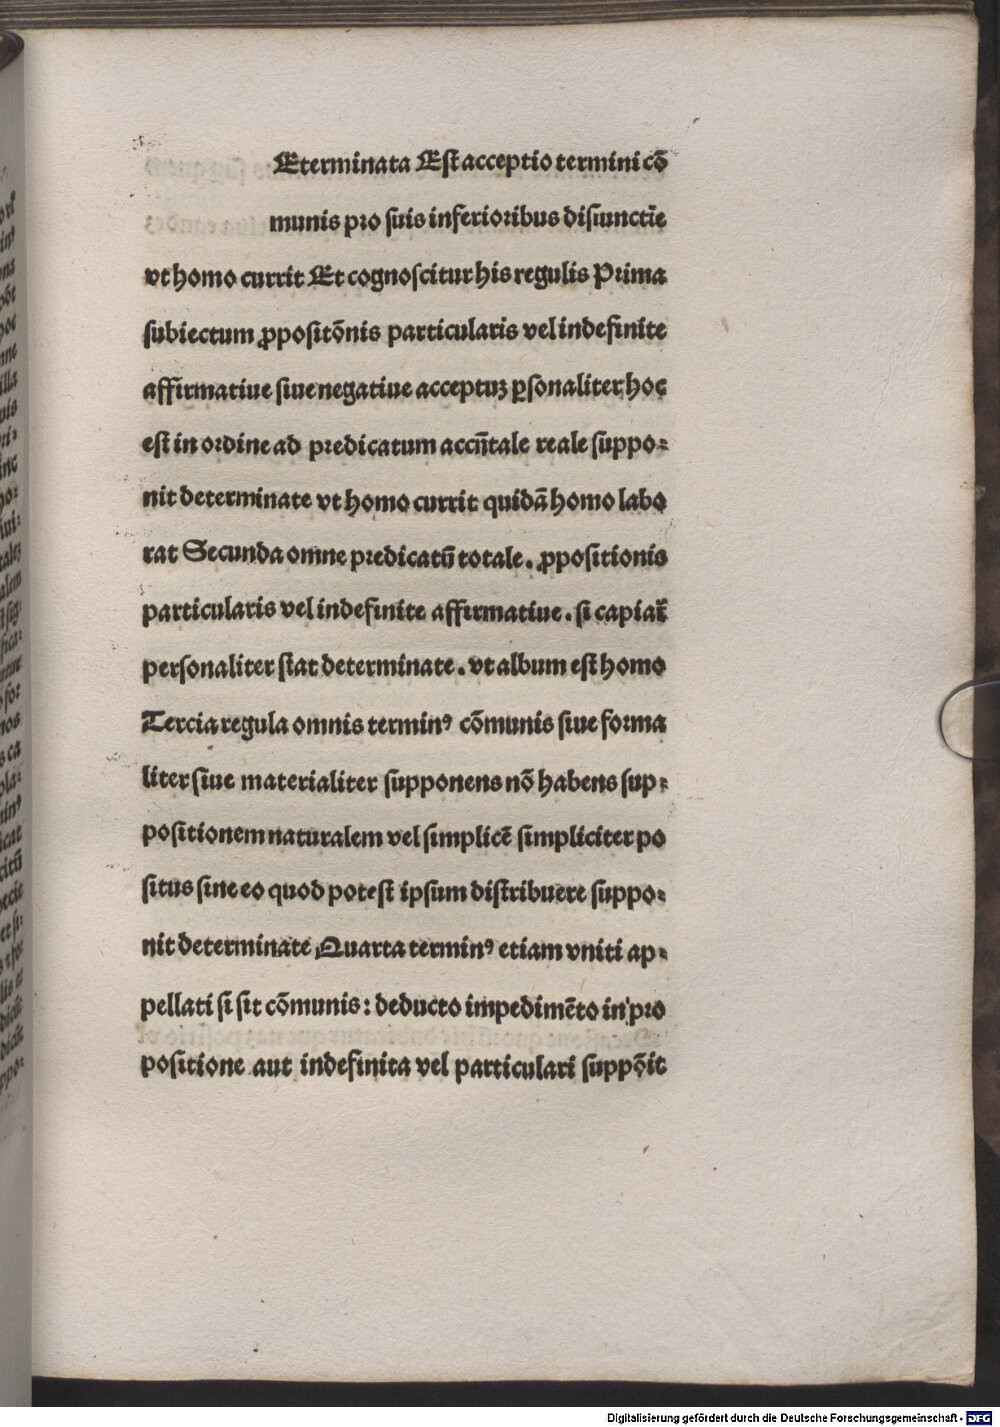 Eterminata Est acceptio termini cō
munis pro suis inferioribus disiunctīe
vt homo currit Et cognoscitur his regulis Prima
subiectum ꝓpositōnis particularis vel indefinite
affirmatiue siue negatiue acceptuꝫ ꝑsonaliter hoc
est in ordine ad predicatum accn̄tale reale suppo⸗
nit determinate vt homo currit quidā homo labo
rat Secunda omne predicatū totale. ꝓpositionis
particularis vel indefinite affirmatiue. si capiat᷑
personaliter stat determinate. vt album est homo
Tercia regula omnis terminꝰ cōmunis siue forma
liter siue materialiter supponens nō habens sup⸗
positionem naturalem vel simplicē simpliciter po
situs sine eo quod potest ipsum distribuere suppo⸗
nit determinate Quarta terminꝰ etiam vniti ap⸗
pellati si sit cōmunis: deducto impedimēto in pro
positione aut indefinita vel particulari suppōit
Digitalisierung gefördert durch die Deutsche Forschungsgemeinschaft - DFG